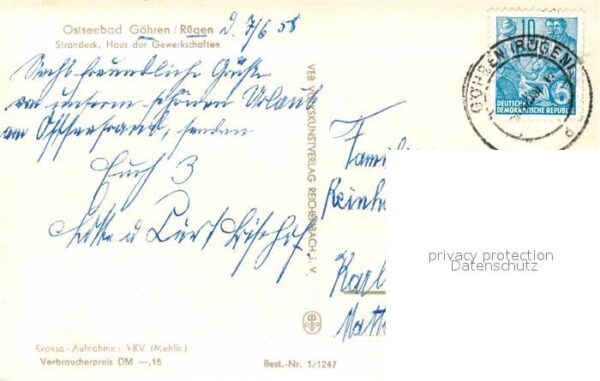 Ostseebad Göhren / Rügen d. 7/6 58
Strandeck, Haus der Gewerkschaften
Sehr freundliche Grüße
von unserem schönen Urlaub
am Ostseestrand, senden
Euch 3
Lotte u Curt Bischof.
VEB VOLKSKUNSTVERLAG REICHENBACH I. V.
Famili
Reinh
Karl
10
DEUTSCHE
DEMOKRATISCHE REPUBLIK
GÖHREN (RÜGEN)
privacy protection
Datenschutz
Exakta-Aufnahme: VKV (Mehlig)
Verbraucherpreis DM —,15
Best.-Nr. 1/1247